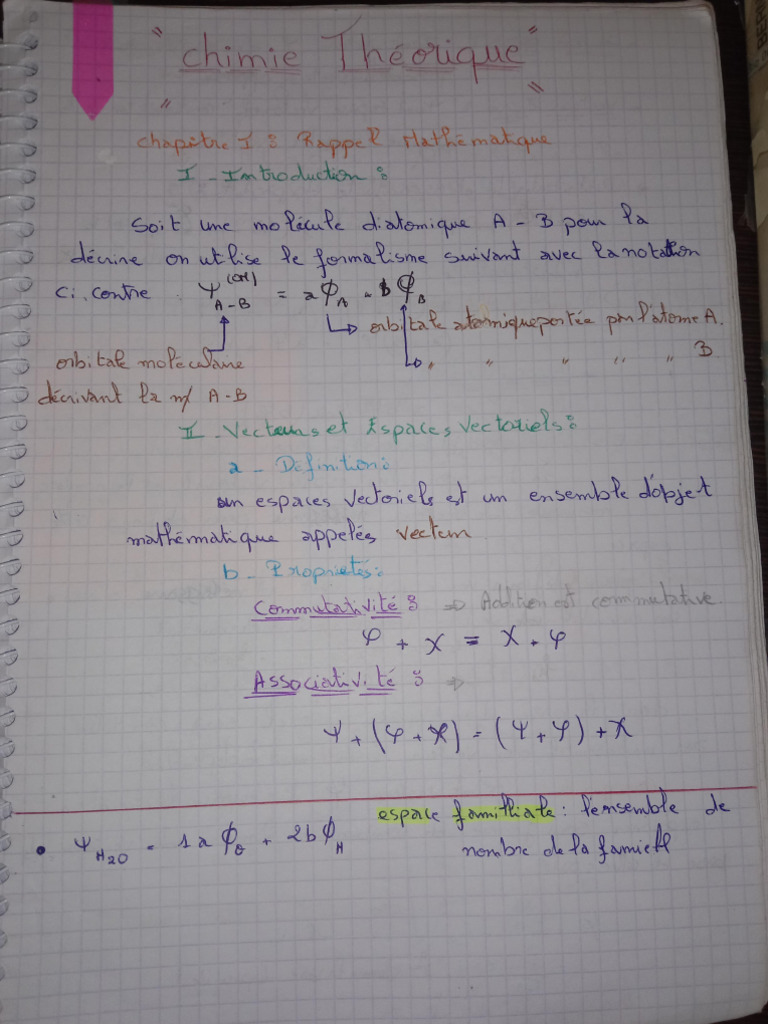 "Chimie Théorique"
Chapître I : Rappel Mathématique
I - Introduction :
Soit une molécule diatomique A - B pour la
décrire on utilise le formalisme suivant avec la notation
ci. contre Ψ_{A-B}^{(OM)} = a ϕ_A + b ϕ_B
orbitale atomique portée par l'atome A.
" " " " " B
orbitale moléculaire
décrivant la m/ A-B
II - Vecteurs et Espaces Vectoriels :
a - Définition :
un espaces vectoriels est un ensemble d'objet
mathématique appelés vecteur
b - Propriétés :
Commutativité : ⇒ Addition est commutative.
φ + χ = χ + φ
Associativité : ⇒
Ψ + (φ + χ) = (Ψ + φ) + χ
espace familliale : l'ensemble de
nombre de la famiell
• Ψ_{H2O} = 1a ϕ_O + 2b ϕ_H